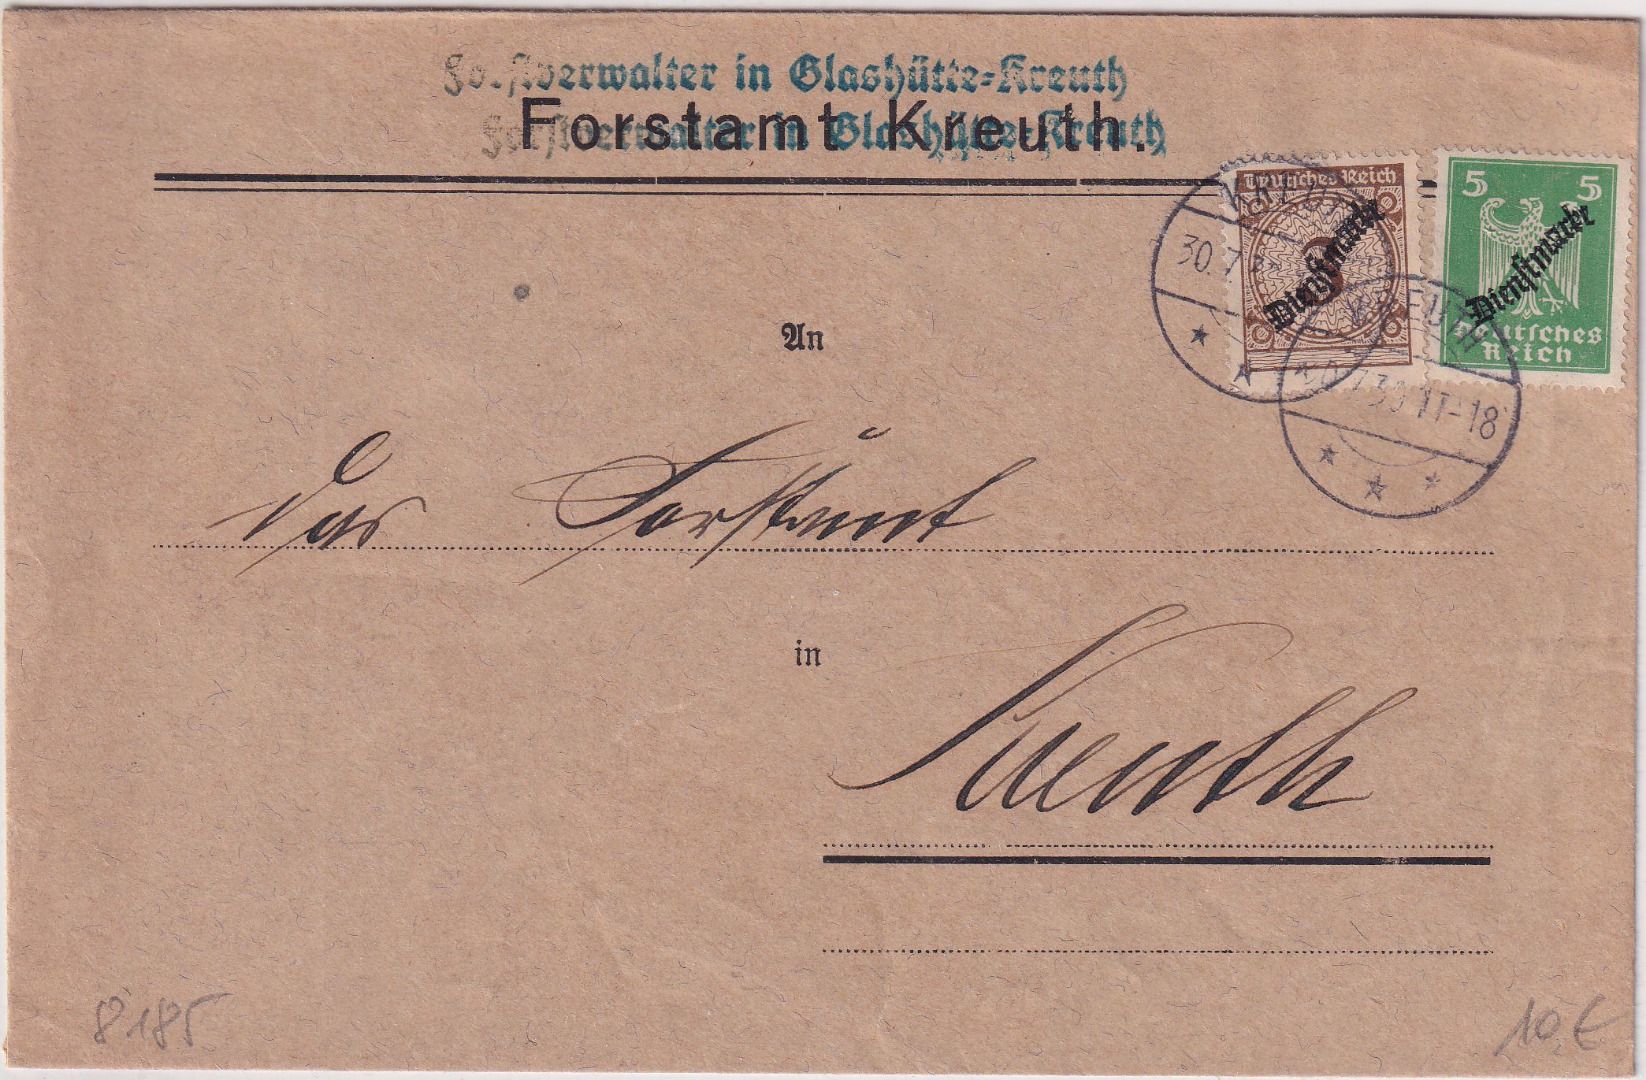 Forstverwalter in Glashütte-Kreuth
Forstamt Kreuth.
Forstverwalter in Glashütte-Kreuth
Deutsches Reich
3
Dienstmarke
5 5
Dienstmarke
Deutsches
Reich
30.7
KREUTH
30.7.30 17-18
An
das Forstamt
in
Kreuth
8185
10,€